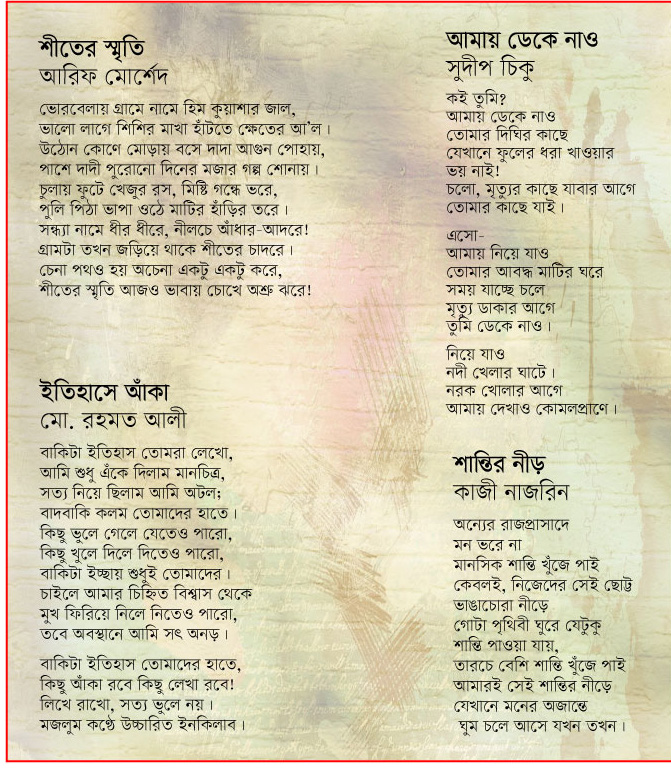 শীতের স্মৃতি
আরিফ মোর্শেদ
ভোরবেলায় গ্রামে নামে হিম কুয়াশার জাল,
ভালো লাগে শিশির মাখা হাঁটতে ক্ষেতের আ'ল।
উঠোন কোণে মোড়ায় বসে দাদা আগুন পোহায়,
পাশে দাদী পুরোনো দিনের মজার গল্প শোনায়।
চুলায় ফুটে খেজুর রস, মিষ্টি গন্ধে ভরে,
পুলি পিঠা ভাপা ওঠে মাটির হাঁড়ির তরে।
সন্ধ্যা নামে ধীর ধীরে, নীলচে আঁধার-আদরে!
গ্রামটা তখন জড়িয়ে থাকে শীতের চাদরে।
চেনা পথও হয় অচেনা একটু একটু করে,
শীতের স্মৃতি আজও ভাবায় চোখে অশ্রু ঝরে!
ইতিহাসে আঁকা
মো. রহমত আলী
বাকিটা ইতিহাস তোমরা লেখো,
আমি শুধু এঁকে দিলাম মানচিত্র,
সত্য নিয়ে ছিলাম আমি অটল;
বাদবাকি কলম তোমাদের হাতে।
কিছু ভুলে গেলে যেতেও পারো,
কিছু খুলে দিলে দিতেও পারো,
বাকিটা ইচ্ছায় শুধুই তোমাদের।
চাইলে আমার চিহ্নিত বিশ্বাস থেকে
মুখ ফিরিয়ে নিলে নিতেও পারো,
তবে অবস্থানে আমি সৎ অনড়।
বাকিটা ইতিহাস তোমাদের হাতে,
কিছু আঁকা রবে কিছু লেখা রবে!
লিখে রাখো, সত্য ভুলে নয়।
মজলুম কণ্ঠে উচ্চারিত ইনকিলাব।
আমায় ডেকে নাও
সুদীপ চিকু
কই তুমি?
আমায় ডেকে নাও
তোমার দিঘির কাছে
যেখানে ফুলের ধরা খাওয়ার
ভয় নাই!
চলো, মৃত্যুর কাছে যাবার আগে
তোমার কাছে যাই।
এসো-
আমায় নিয়ে যাও
তোমার আবদ্ধ মাটির ঘরে
সময় যাচ্ছে চলে
মৃত্যু ডাকার আগে
তুমি ডেকে নাও।
নিয়ে যাও
নদী খেলার ঘাটে।
নরক খোলার আগে
আমায় দেখাও কোমলপ্রাণে।
শান্তির নীড়
কাজী নাজরিন
অন্যের রাজপ্রাসাদে
মন ভরে না
মানসিক শান্তি খুঁজে পাই
কেবলই, নিজেদের সেই ছোট্ট
ভাঙাচোরা নীড়ে
গোটা পৃথিবী ঘুরে যেটুকু
শান্তি পাওয়া যায়,
তারচে বেশি শান্তি খুঁজে পাই
আমারই সেই শান্তির নীড়ে
যেখানে মনের অজান্তে
ঘুম চলে আসে যখন তখন।